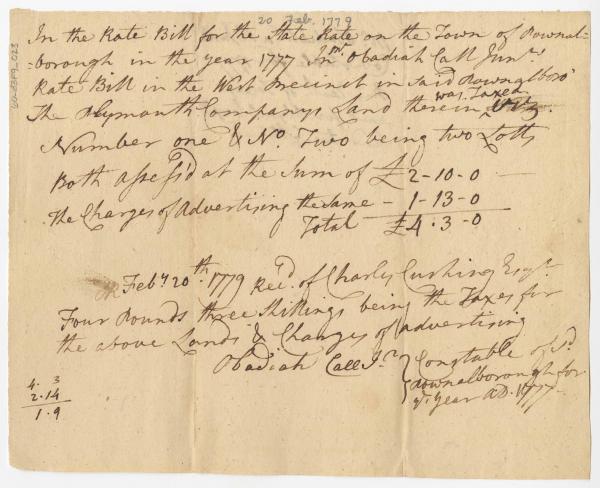 20 Feb. 1779
In the Rate Bill for the State Rate on the Town of Pownal-
-borough in the year 1777 In Mr. Obadiah Call Junrs
Rate Bill in the West Precinct in said Pownalboro'
The Plymouth Companys Land therein was Taxed Viz.
Number one & No. Two being two Lotts
Both assess'd at the Sum of £2-10-0
The Charges of Advertising the same - 1-13-0
Total £4.3-0
Feby. 20th. 1779 Rec'd. of Charles Cushing Esqr.
Four Pounds three Shillings being the Taxes for
the above Lands & Charges of advertising
Obadiah Call Jr. } Constable of sd.
Pownalborough for
ye. Year AD. 1777
4. 3
2.14
1.9